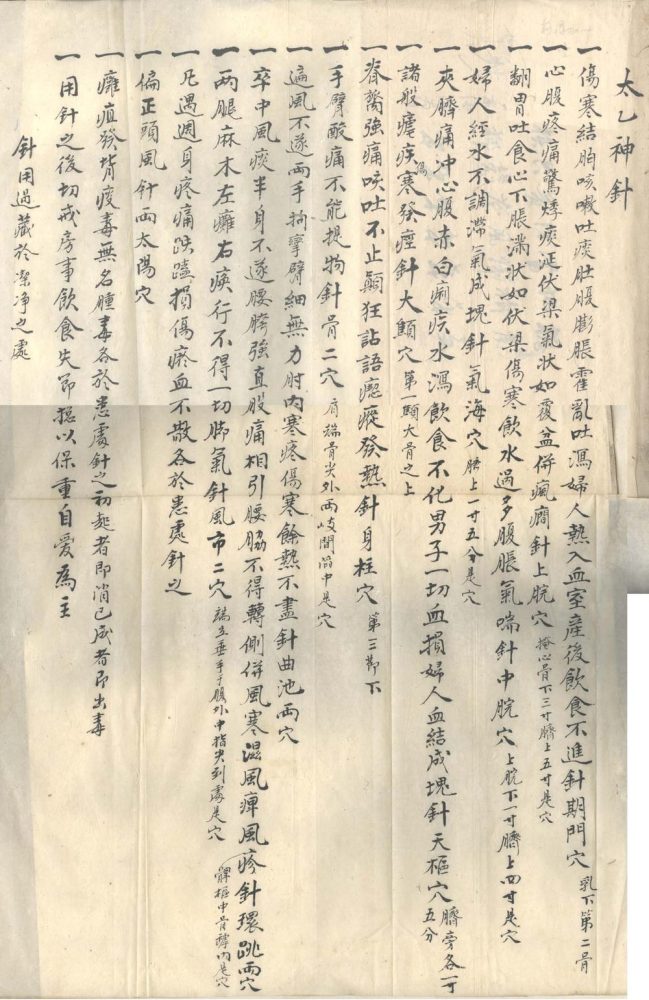 太乙神針
一 傷寒結胸咳嗽吐痰肚腹膨脹霍亂吐瀉婦人熱入血室產後飲食不進針期門穴 乳下第二骨
一 心腹疼痛驚悸痰涎伏梁氣狀如覆盆併瘋癎針上脘穴 掩心骨下三寸臍上五寸是穴
一 翻胃吐食心下脹滿狀如伏梁傷寒飲水過多腹脹氣喘針中脘穴 上脘下一寸臍上四寸是穴
一 婦人經水不調滯氣成塊針氣海穴 臍上一寸五分是穴
一 夾臍痛冲心腹赤白痢疾水瀉飲食不化男子一切血損婦人血結成塊針天樞穴 臍旁各一寸五分
一 諸般瘧疾寒發痙針大顀穴 第一顀大骨之上
一 脊膂強痛咳吐不止顛狂詀語瘛瘲發熱針身柱穴 第三節下
一 手臂酸痛不能提物針骨二穴 肩端骨尖外兩歧間當中是穴
一 遍風不遂兩手拘攣臂細無力肘內寒疼傷寒餘熱不盡針曲池兩穴
一 卒中風痰半身不遂腰胯強直股痛相引腰脇不得轉側併風寒濕風痺風疹針環跳兩穴 髀樞中骨縫內是穴
一 兩腿麻木左癱右瘓行不得一切脚氣針風市二穴 端立垂手于腿外中指尖到處是穴
一 凡遇週身疼痛跌蹼損傷瘀血不散各於患處針之
一 偏正頭風針兩太陽穴
一 癰疽發背疫毒無名腫毒各於患處針之初起者即消已成者即出毒
一 用針之後切戒房事飲食失節總以保重自愛為主
針用過藏於潔淨之處